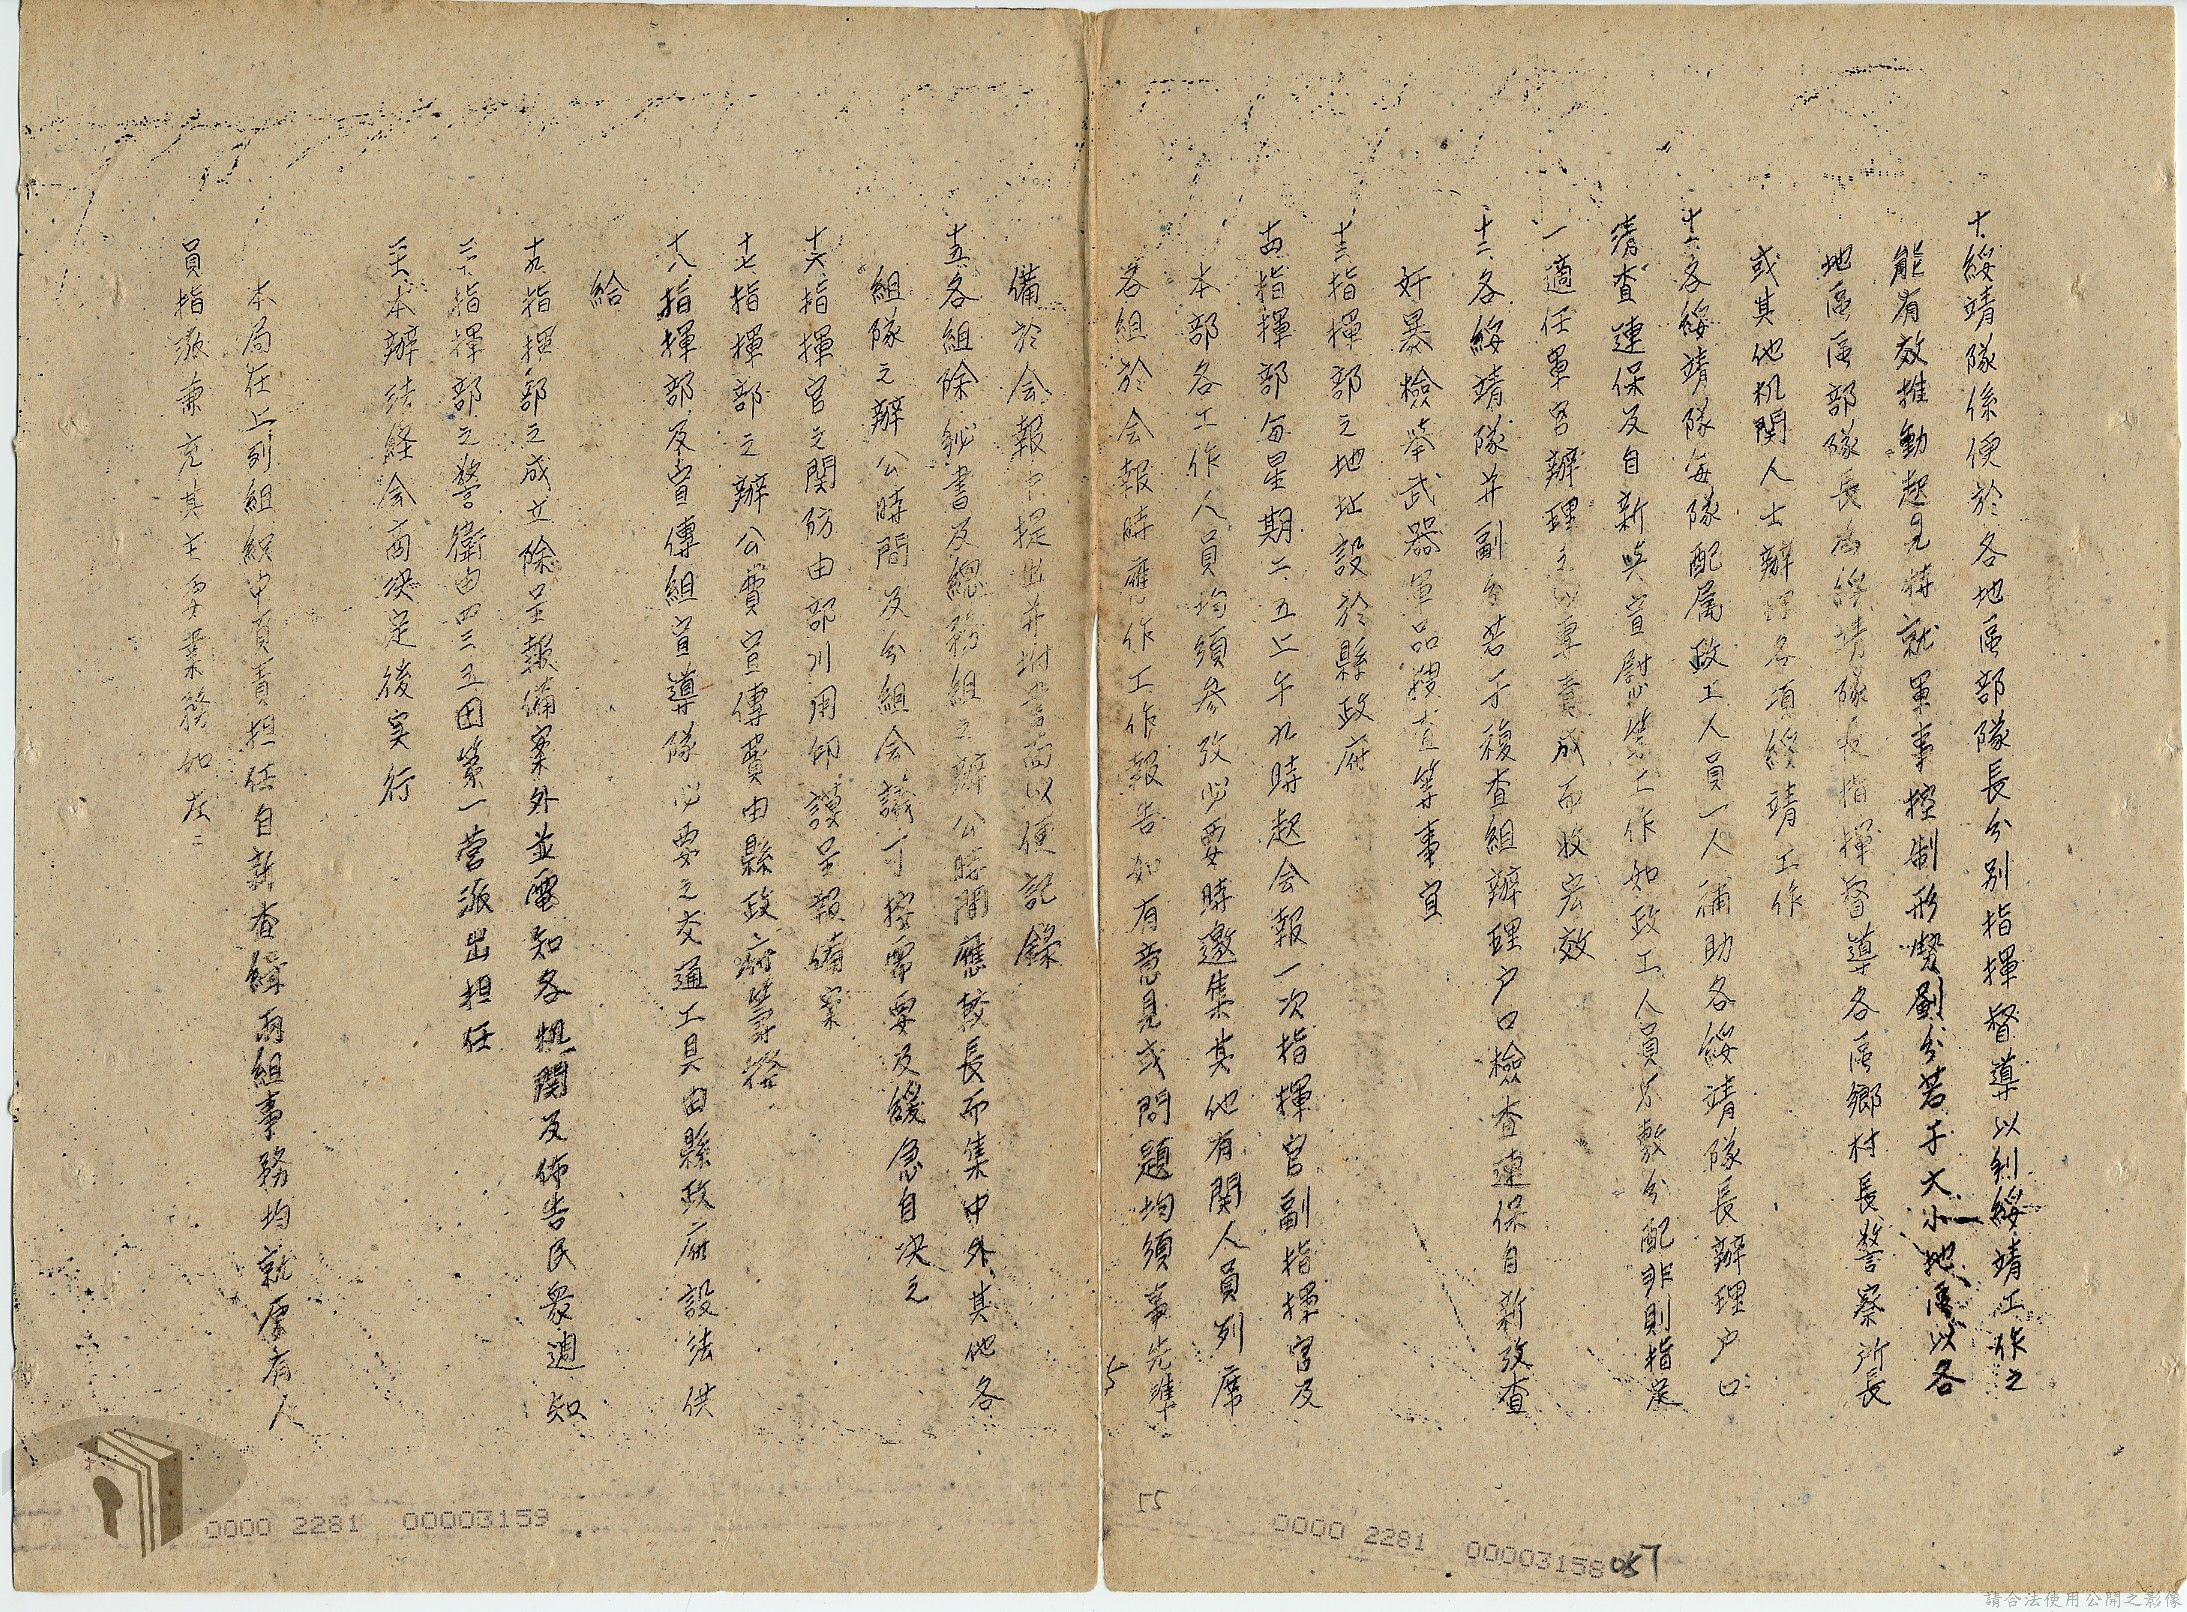 十、綏靖隊係便於各地區部隊長分别指揮督導以利綏靖工作之
能有效推動起見特就軍事控制形勢劃分若干大小地區以各
地區區部隊長為綏靖隊長指揮督導各區鄉村長警察所長
或其他机関人士辦理各項綏靖工作
十一、各綏靖隊每隊配属政工人員一人補助各綏靖隊長辦理户口
清查連保及自新與宣慰等工作如政工人員不敷分配非則指定
一適任軍官辦理之以專責成而收宏效
十二、各綏靖隊并副分若干複查組辦理户口檢查連保自新攷查
奸暴檢举武器軍品搜查等事宜
十三、指揮部之地址設於縣政府
十四、指揮部每星期二、五上午九時起会報一次指揮官副指揮官及
本部各工作人員均須参攷必要時邀集其他有関人員列席
各組於会報時應作工作報告如有意見或問題均須事先準
備於会報中提出并坿書面以便記錄
十五、各組除秘書及總務組之辦公時間應較長而集中外其他各
組隊之辦公時間及分組会議可按需要及緩急自决之
十六、指揮官之関防由部刋用印謨呈報備案
十七、指揮部之辦公費宣傳費由縣政府籌撥
十八、指揮部及宣傳組宣導隊必要之交通工具由縣政府設法供
給
十九、指揮部之成立除呈報備案外並電知各机関及佈告民衆週知
二十、指揮部之警衛由四三五団第一营派出担任
二一、本辦法経会商决定後实行
本局在上列組織中負責担任自新查緝兩組事務均就原有人
員指派兼充其主要業務如左：
5
55
0000 2281 00003158
057
0000 2281 00003159
請合法使用公開之影像